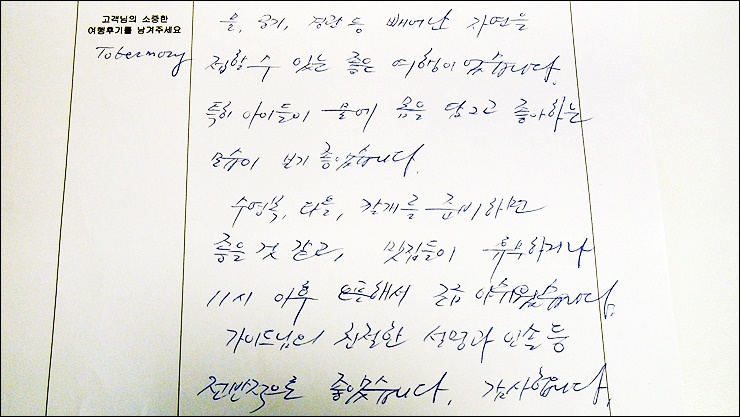 고객님의 소중한
여행후기를 남겨주세요
Tobermory
물, 공기, 경관 등 빼어난 자연을
접할 수 있는 좋은 여행이었습니다.
특히 아이들이 물에 몸을 담그고 좋아하는
모습이 보기 좋았습니다.
수영복, 타올, 깔개를 준비하면
좋을 것 같고, 맛집들이 훌륭하나
11시 이후 오픈해서 조금 아쉬웠습니다.
가이드님의 친절한 설명과 인솔 등
전반적으로 좋았습니다. 감사합니다.